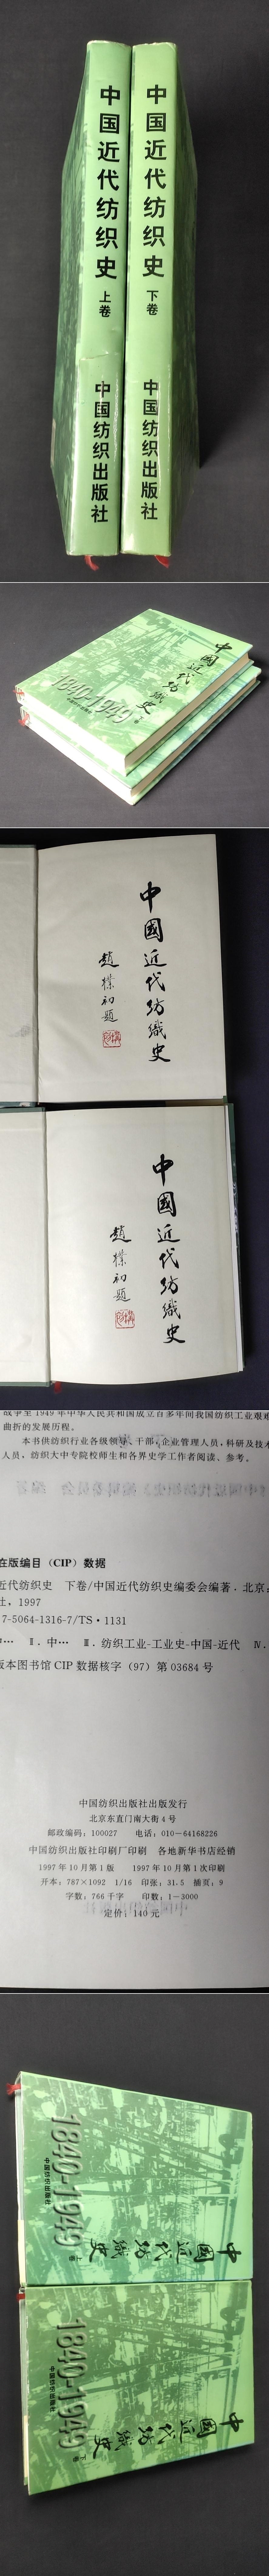 中国近代纺织史
上卷
中国纺织出版社
中国近代纺织史
下卷
中国纺织出版社
中国近代纺织史
1840-1949
中國近代纺織史
趙樸初題
中國近代纺織史
趙樸初題
战争至1949年中华人民共和国成立百多年间我国纺织工业艰难
曲折的发展历程。
本书供纺织行业各级领导、干部,企业管理人员,科研及技术
人员,纺织大中专院校师生和各界史学工作者阅读、参考。
在版编目(CIP)数据
近代纺织史 下卷/中国近代纺织史编委会编著.北京:
社,1997
7-5064-1316-7/TS·1131
Ⅱ.中… Ⅲ.纺织工业-工业史-中国-近代 Ⅳ.
版本图书馆CIP数据核字(97)第03684号
中国纺织出版社出版发行
北京东直门南大街4号
邮政编码:100027 电话:010-64168226
中国纺织出版社印刷厂印刷 各地新华书店经销
1997年10月第1版 1997年10月第1次印刷
开本:787×1092 1/16 印张:31.5 插页:9
字数:766千字 印数:1-3000
定价:140元
中国近代纺織史
上卷
1840-1949
中国纺织出版社
中国近代纺織史
下卷
1840-1949
中国纺织出版社